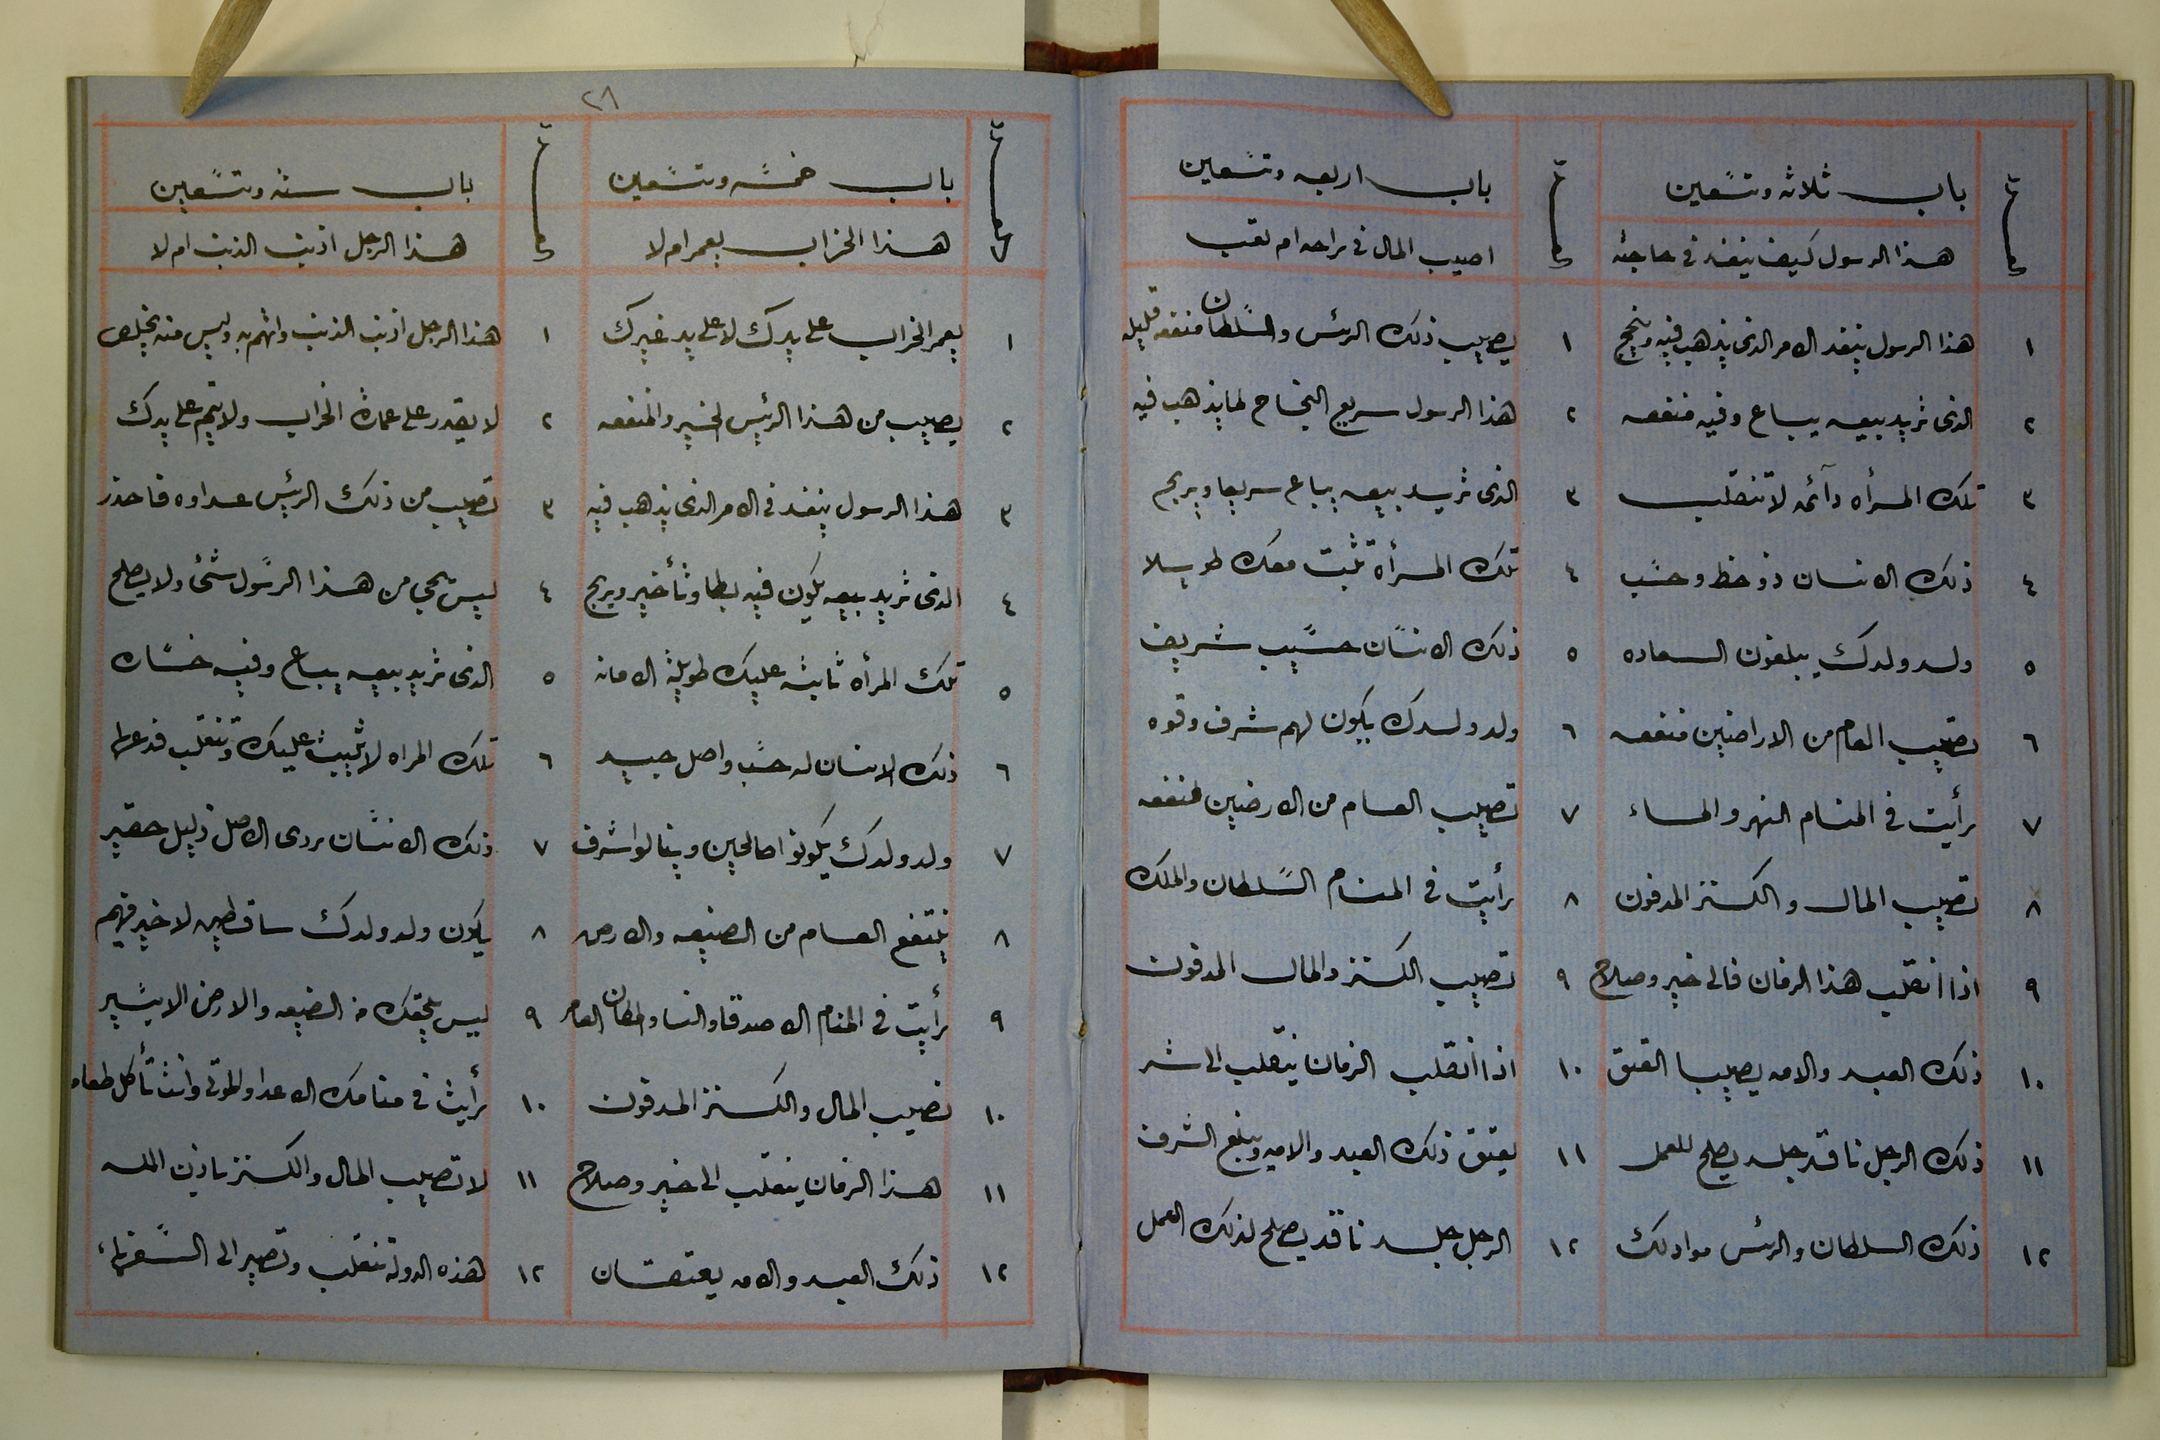 باب ثلاثه وتسعين
هذا الرسول كيف ينفذ في حاجته
١ هذا الرسول ينفد الامر الذى يذهب فيه وينجح
٢ الذى تريد بيعه يباع وفيه منفعه
٣ تلك المرأه دآئمه لا تنقلب
٤ ذلك الانسان ذو حظ وحسب
٥ ولد ولدك يبلغون السعاده
٦ تصيب العام من الاراضين منفعه
٧ رأيت في المنام النهر والماء
٨ تصيب المال والكنز المدفون
٩ اذا انقلب هذا الزمان فالى خير وصلاح
١٠ ذلك العبد والامه يصيبا العتق
١١ ذلك الرجل نافد جلد يصلح للعمل
١٢ ذلك السلطان والرئس موادلك
باب اربعه وتسعين
اصيب المال في راحه ام تعب
١ يصيب ذلك الرئس والسلطان منفعه قليله
٢ هذا الرسول سريع النجاح لما يذهب فيه
٣ الذى تريد بيعه يباع سريعا ويربح
٤ تلك المرأة تثبت معك طويلا
٥ ذلك الانسان حسيب شريف
٦ ولد ولدك يكون لهم شرف وقوه
٧ تصيب العام من الارضين منفعه
٨ رأيت في المنام السلطان والملك
٩ تصيب الكنز والمال المدفون
١٠ اذا انقلب الزمان ينقلب الى شر
١١ يعتق ذلك العبد والامه ويبلغ الشرف
١٢ الرجل جلد نافد يصلح لذلك العمل
٢٨
باب خمسه وتسعين
هذا الخراب يعمر ام لا
١ يعمر الخراب على يدك لا على يد غيرك
٢ يصيب من هذا الرئيس الخير والمنفعه
٣ هذا الرسول ينفد في الامر الذى يذهب فيه
٤ الذى تريد بيعه يكون فيه بطا وتأخير ويربح
٥ تلك المرأه ثابته عليك طويلة الامانه
٦ ذلك الانسان له حسب واصل جيد
٧ ولد ولدك يكونوا صالحين وينالوا شرف
٨ ينتفع العام من الضيعه والارض
٩ رأيت في المنام الاصدقا والنسا والمكان العامر
١٠ تصيب المال والكنز المدفون
١١ هذا الزمان ينقلب الى خير وصلاح
١٢ ذلك العبد والامه يعتقان
باب سته وتسعين
هذا الرجل اذنب الذنب ام لا
١ هذا الرجل اذنب الذنب واتهم به وليس منه يخلص
٢ لا يقدر على عمارة الخراب ولا يتم على يدك
٣ تصيب من ذلك الرئيس عداوه فاحذر
٤ ليس يجي من هذا الرسول شئ ولا يصلح
٥ الذى تريد بيعه يباع وفيه خساره
٦ تلك المراه لا تثبيت عليك وتنقلب فدعها
٧ ذلك الانسان ردى الاصل ذليل حقير
٨ يكون ولد ولدك ساقطين لا خير فيهم
٩ ليس يلحقك من الضيعه والارض الا يسير
١٠ رأيت في منامك الاعدا والموتى وانت تأكل طعام
١١ لا تصيب المال والكنز باذن الله
١٢ هذه الدولة تنقلب وتصير الى